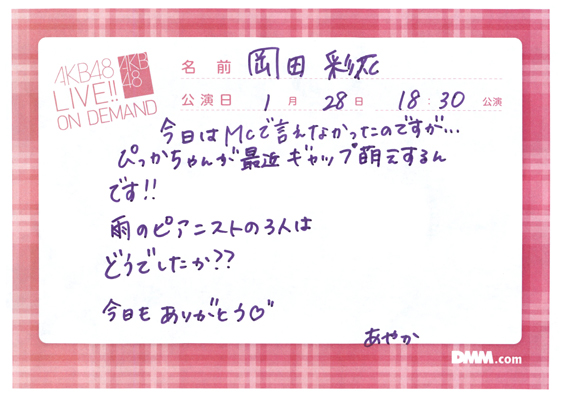 AKB48
LIVE!!
ON DEMAND
AKB
48
名 前 岡田 彩花
公演日 1月 28日 18:30 公演
今日はMCで言えなかったのですが…
ぴっかちゃんが最近ギャップ萌えするん
です!!
雨のピアニストの3人は
どうでしたか??
今日もありがとう♡"
あやか
DMM.com